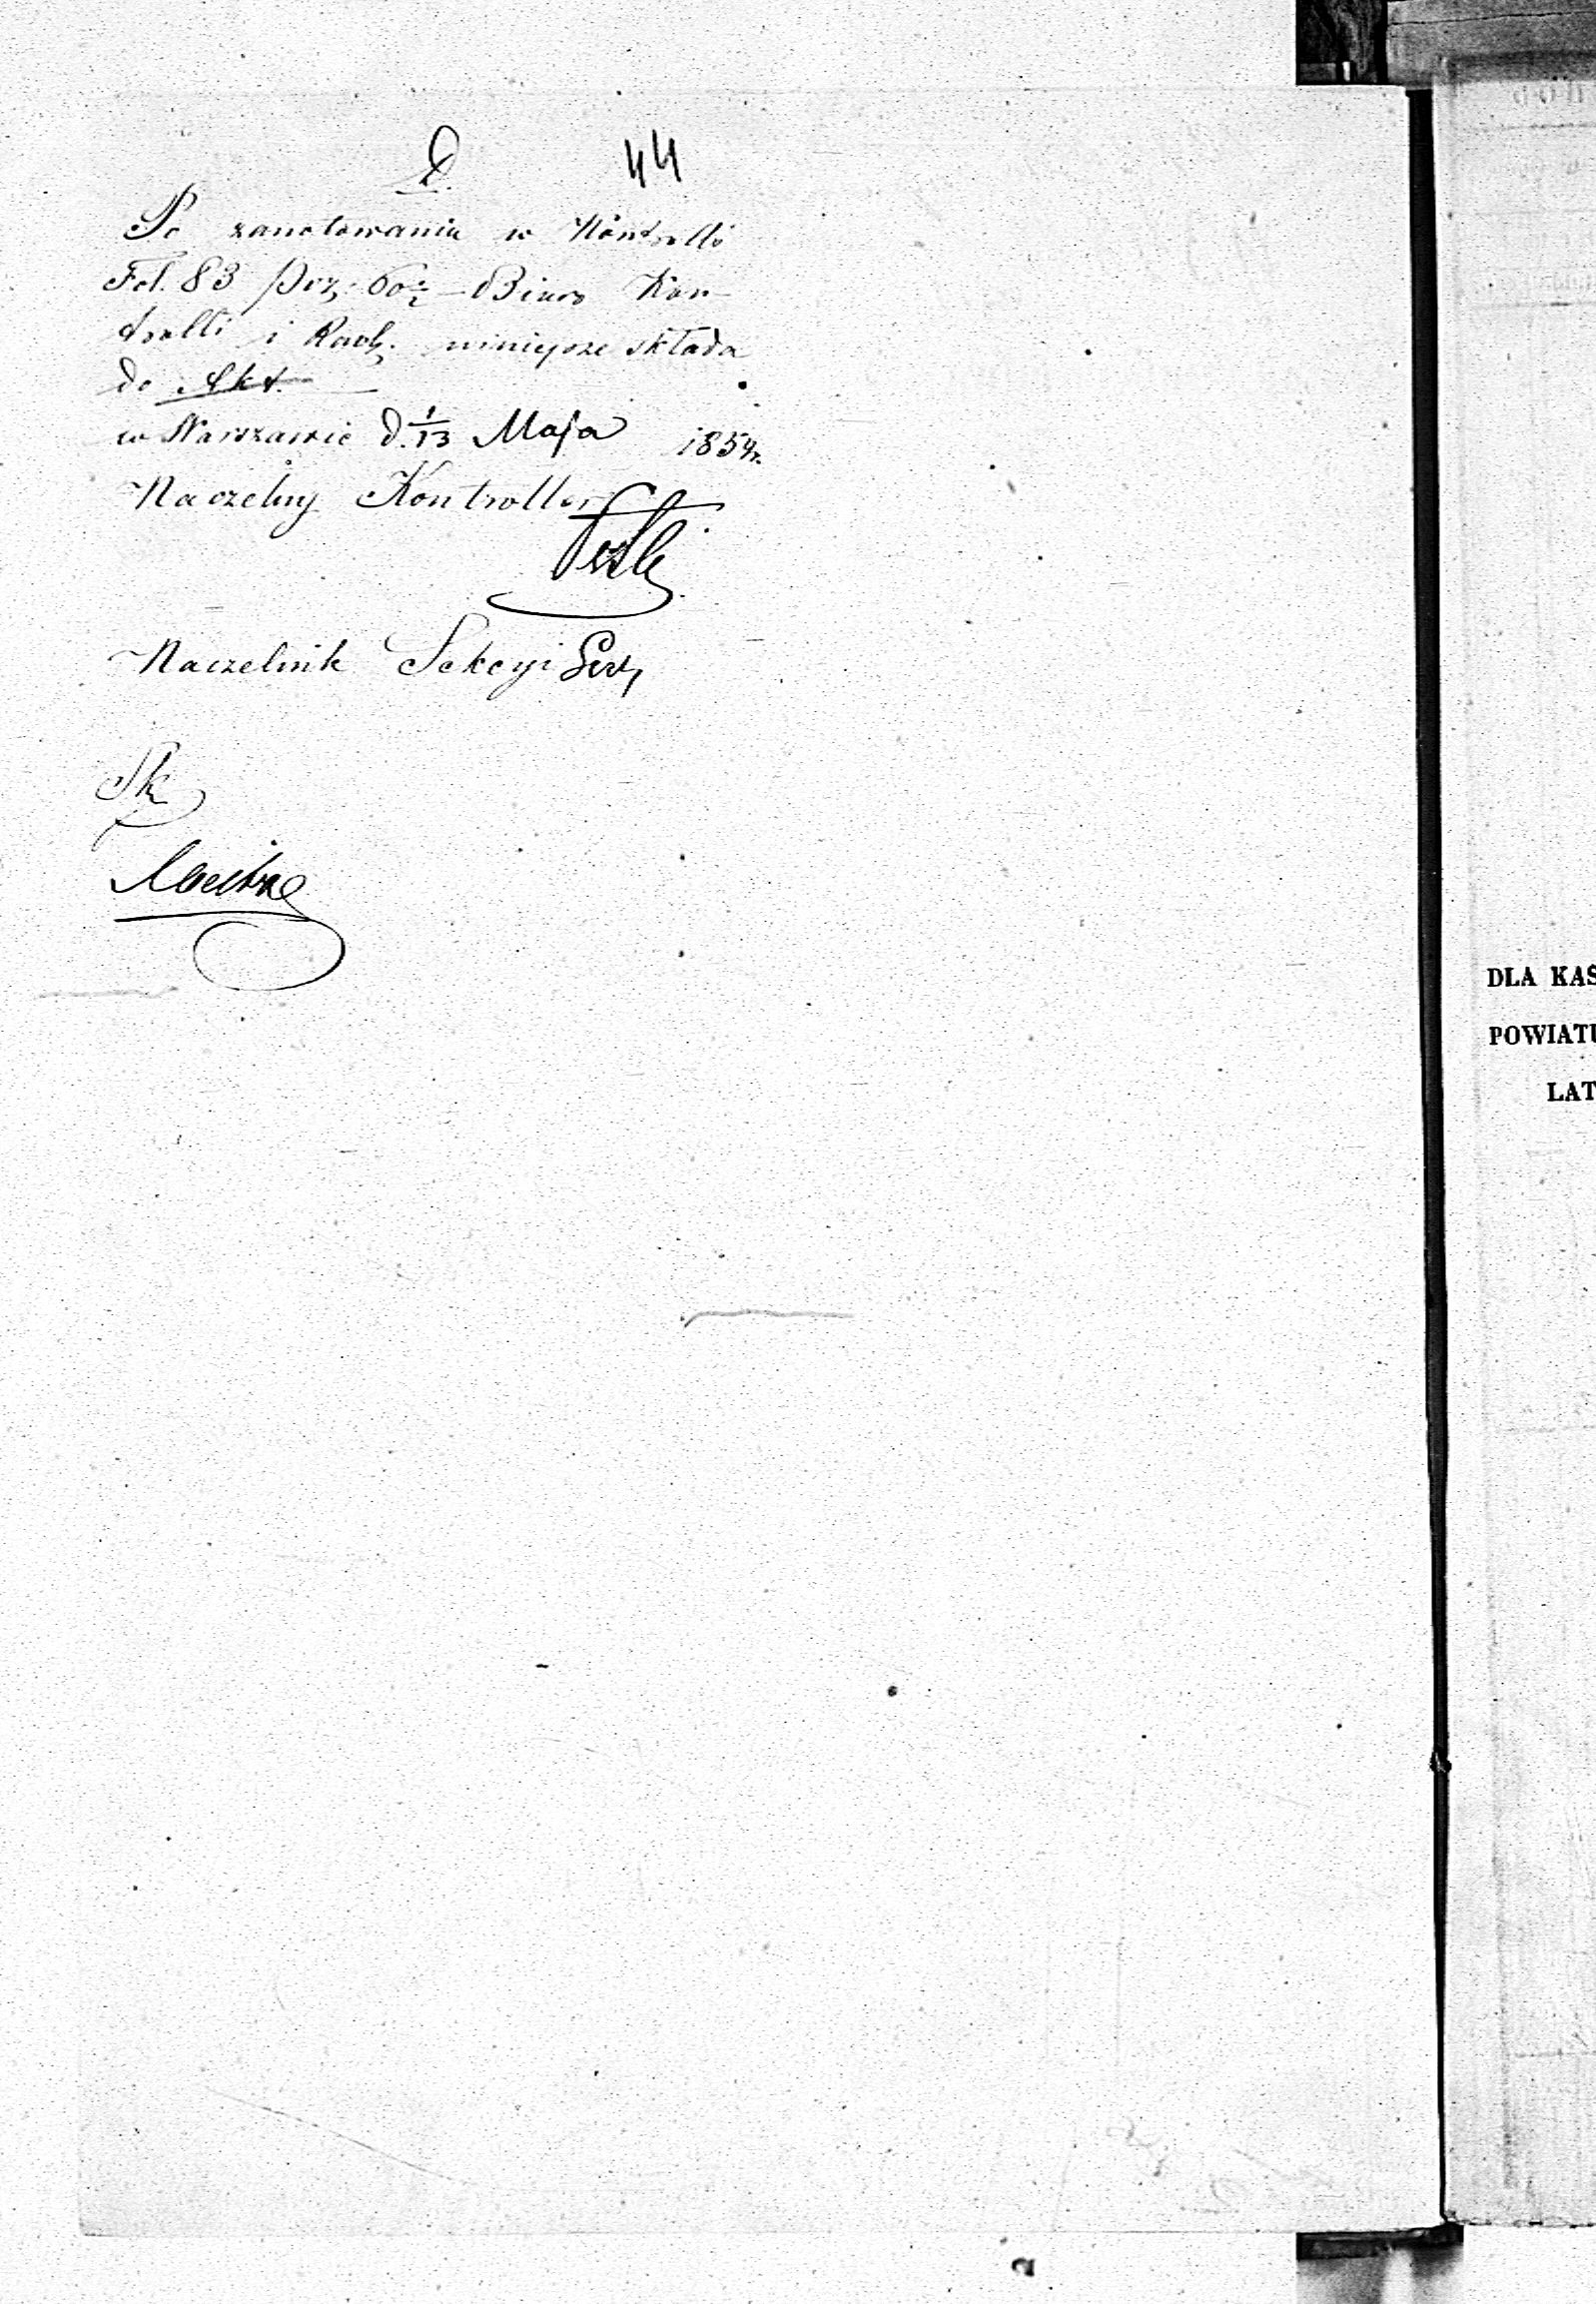 D.
44
Po zanotowaniu w Kontrolli
Fol. 83 Poz. Biuro Kon-
trolli i Rach. niniejsze składa
do Akt.
w Warszawie d. 1/13 Maja 1854r.
Naczelny Kontroller
Naczelnik Sekcyi
Sk
DLA KAS
POWIATU
LAT